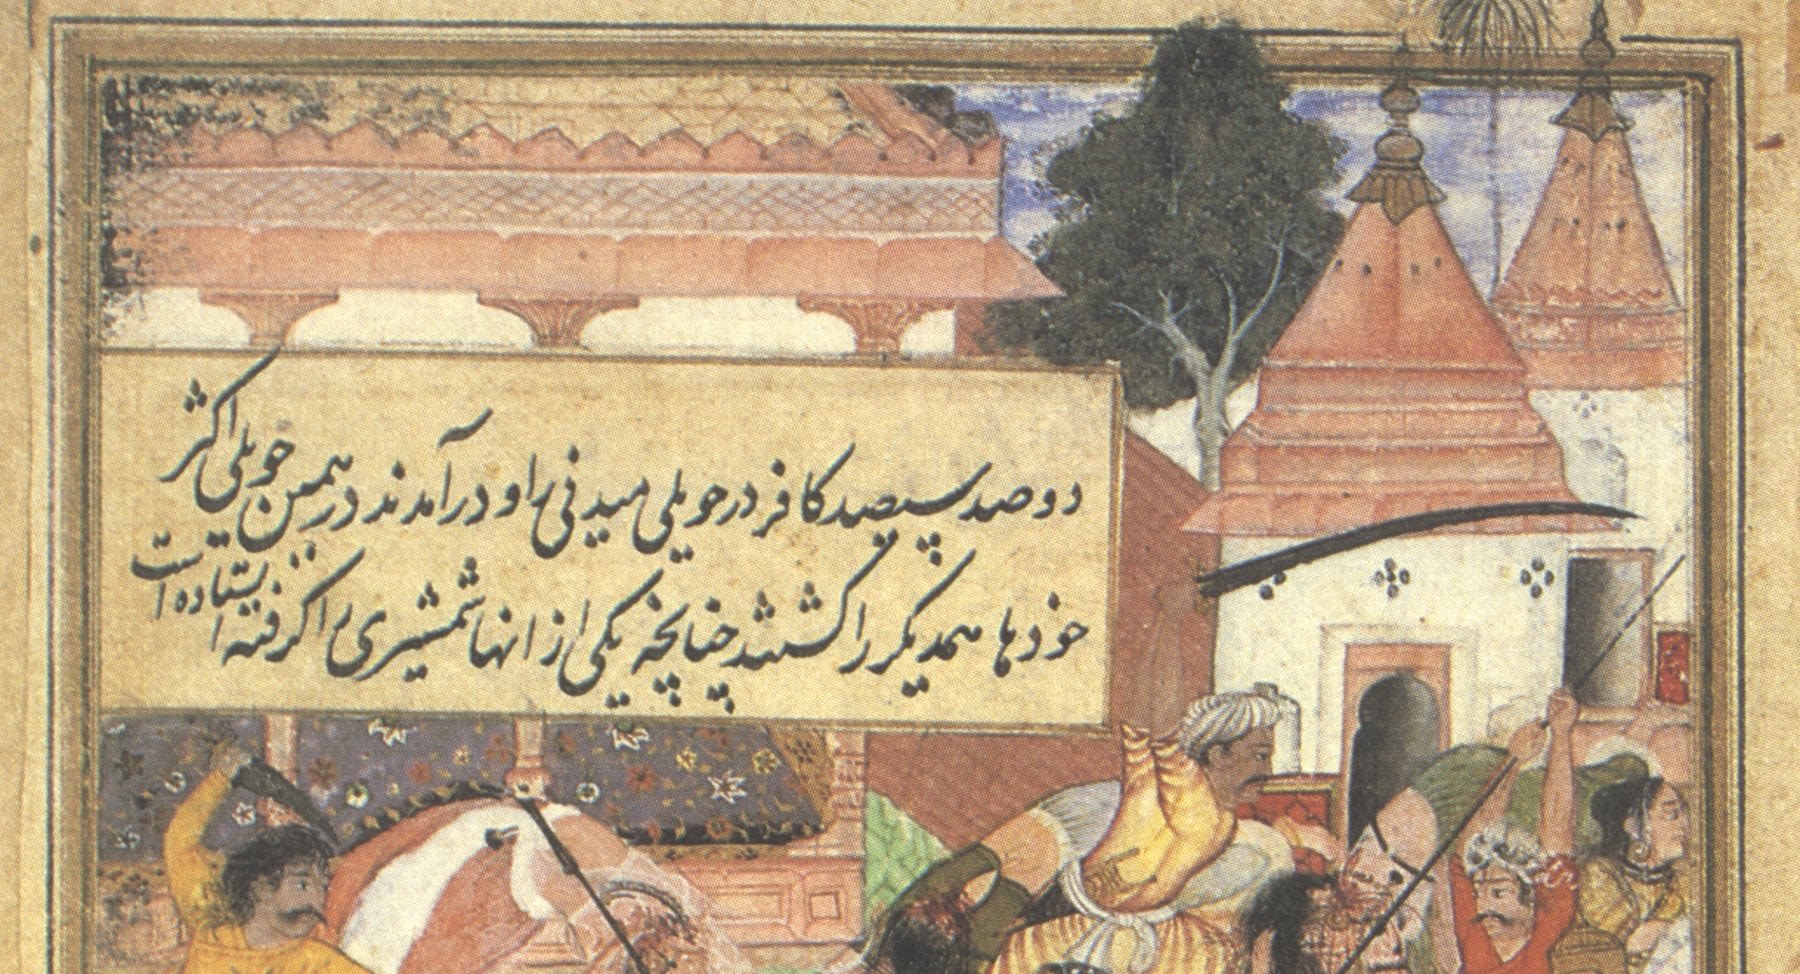 دوصد سیصد کافر در حویلی میدنی راو درآمدند در همین حویلی اکثر
خودها همدیگر را کشتند چنانچه یکی از انها شمشیری را گرفته ایستاده است